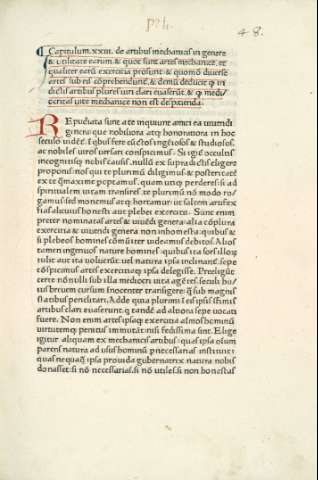 48.
¶ Capitulum. xxiii. de artibus mechanicis in genere
& utilitate earum: & quot sunt artes mechanicę. et
qualiter earū exercitia prosunt: & quomō diuersę
artes sub eis cōprehendunt̃. & demū deducit̃ ꝙ in
dictis artibus plures uiri clari euaserūt. & ꝙ medi/
ocritas uitę mechanicę non est despicienda.
REpudiata sunt a te iniquiunt amici ea uiuendi
genera quę nobiliora atq; honoratiora in hoc
seculo uidēt̃.
ac nobiles uiros uersari conspicimus. Si igit̃ occultis
incognitisq; nobis causis. nullū ex supradictis eligere
proponis: nos qui te plurimū diligimus & posteritatē
ex te q̃maxime optamus. quam unq; perderes: si ad
spiritualem uitam transires. te plurimū nō modo ro/
gamus: sed monemus atq; hortamur. ut saltem artes ex
his aliquas honestas aut plebee exerceas. Sunt enim
preter nominatas artes & uiuēdi genera: alia cōplura
exercitia & uiuendi genera non inhonesta: quibus &
si plebeos homines cōmuniter uideamus debitos. Alios
tamen ingenuos natura homines: quibus ita sors illos
tulit aut ita uoluerūt: uel natura ipsa inclinauit. sepe
cōspicimus artes exercitiaq; ipsa delegisse. Preelegūt
certe nō nulli sub illa mediocri uita agētes. seculi hu/
ius breuem cursum inocenter transigere: q̃ sub magnis
statibus periclitari. Adde quia plurimi ex ipsis
artibus clari euaserunt. q̃ tandē ad altiora sepe uocati
fuere. Non enim artes ipsaq; exercitia
uirtutemq; penitus immutāt: nisi fedissima sint. Elige
igitur aliquam ex mechanicis artibus: quas ipsa
parens natura ad usus hominū necessarias instituit:
quas nequaq̃ ipsa prouida gubernatrix natura nobis
donasset: si nō necessarias. si nō utiles. si non honestas